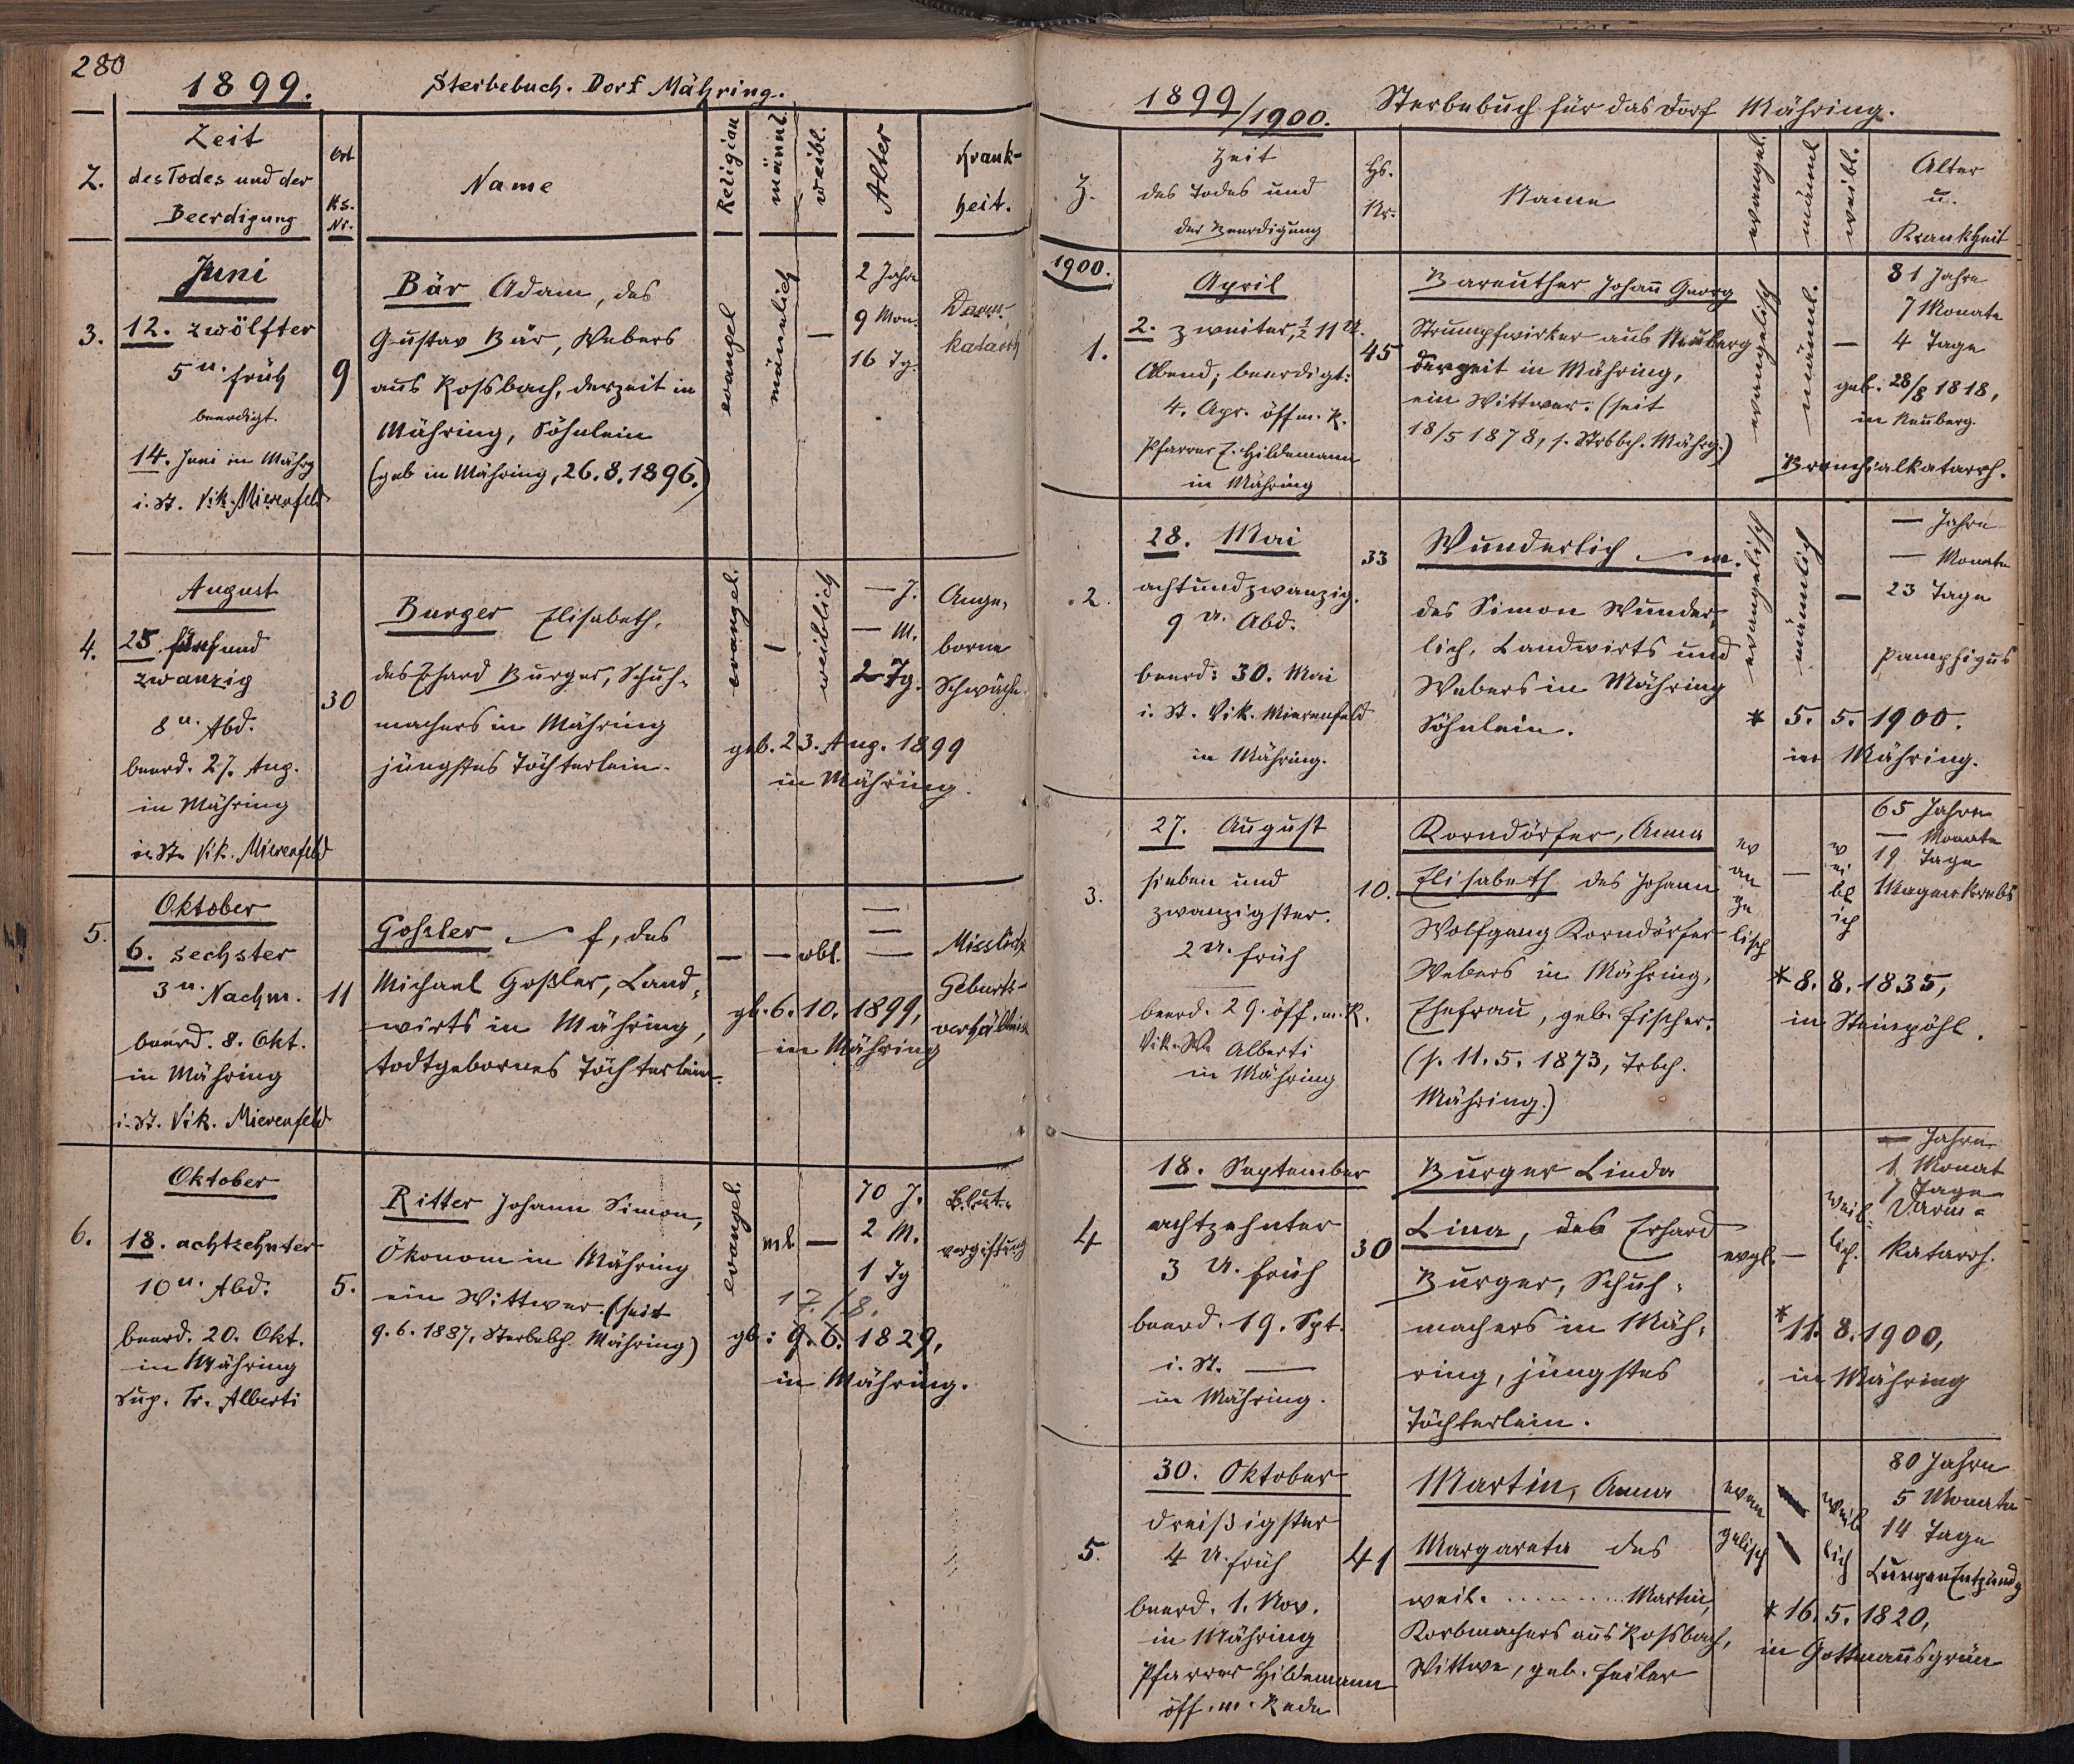 280
1899. Sterbebuch. Dorf Mähring.
Z.
Zeit
des Todes und der
Beerdigung
Ort
Hs.
Nr.
Name
Religion
männl.
weibl.
Alter
Krank-
heit.
Juni
3.
12. zwölfter
5 u. früh
beerdigt.
14. Juni in Mährg
i. St. Vik. Mierenfeld
9
Bär Adam, des
Gustav Bär, Webers
aus Rossbach, derzeit in
Mähring, Söhnlein
(geb in Mähring, 26.8.1896.)
evangel
männlich
—
2 Jahre
9 Mon.
16 Tg.
Darm-
katarrh
August
4.
25. fünfund
zwanzig
8 u. Abd.
beerd. 27. Aug.
in Mähring
i. St. Vik. Mierenfeld
30
Burger Elisabeth,
des Erhard Burger, Schuh-
machers in Mähring
jüngstes Töchterlein.
evangel.
—
weiblich
— J.
— M.
2 Tg.
Ange-
borne
Schwäche
geb. 23. Aug. 1899
in Mähring.
Oktober
5.
6. sechster
3 u. Nachm.
beerd. 8. Okt.
in Mähring
i. St. Vik. Mierenfeld
11
Goßler f, des
Michael Goßler, Land-
wirts in Mähring,
todtgebornes Töchterlein.
— — wbl.
—
—
—
Missliche
Geburts-
verhältnisse
gb. 6. 10. 1899,
in Mähring
Oktober
6.
18. achtzehnter
10 u. Abd.
beerd. 20. Okt.
in Mähring
Sup. Tr. Alberti
5.
Ritter Johann Simon,
Ökonom in Mähring
ein Wittwer. (seit
9.6.1887, Sterbebch. Mähring)
evangel.
ml —
70 J.
2 M.
1 Tg
Blut-
vergiftung
17./8.
gb: 9. 6. 1829,
in Mähring.
1899/1900. Sterbebuch für das Dorf Mähring.
Z.
Zeit
des Todes und
der Beerdigung
Hs.
Nr.
Name
evangel.
männl
weibl.
Alter
u.
Krankheit
1900.
April
1.
2. zweiter, ½ 11 U.
Abend, beerdigt:
4. Apr. öff m. R.
Pfarrer E. Hildemann
in Mähring
45
Bareuther Johann Georg
Strumpfwirker aus Neuberg
derzeit in Mähring,
ein Wittwer. (seit
18/5 1878, s. Strbbch. Mährg.)
evangelisch
männl.
—
81 Jahre
7 Monate
4 Tage
geb. 28/8 1818,
in Neuberg.
Bronchialkatarrh.
28. Mai
2.
achtundzwanzig.
9 U. Abd.
beerd: 30. Mai
i. St. Vik. Mierenfeld
in Mähring.
33
Wunderlich m.
des Simon Wunder-
lich, Landwirts und
Webers in Mähring
Söhnlein.
evangelisch
männlich
—
— Jahre
— Monate
23 Tage
Pemphigus
* 5. 5. 1900.
in Mähring.
27. August
3.
sieben und
zwanzigster.
2 U. früh
beerd. 29. öff. m. R.
Vik. Alberti
in Mähring
10.
Korndörfer, Anna
Elisabeth des Johann
Wolfgang Korndörfer
Webers in Mähring,
Ehefrau, geb. Fischer.
(s. 11. 5. 1873, Trbch.
Mähring.)
ev
an
ge
lisch
—
w
ei
bl
ich
65 Jahre
— Monate
19 Tage
Magenkrebs
* 8. 8. 1835,
in Steinpöhl.
18. September
4
achtzehnter
3 U. früh
beerd. 19. Spt.
i. St. —
in Mähring.
30
Burger Linda
Lina, des Erhard
Burger, Schuh-
machers in Mäh-
ring, jüngstes
Töchterlein.
evgl.
—
weib-
lich.
— Jahre
1 Monat
7 Tage
Darm-
katarrh.
* 11. 8. 1900,
in Mähring
30. Oktober
5.
dreißigster
4 U. früh
beerd. 1. Nov.
in Mähring
Pfarrer Hildemann
öff. m. Rede
41
Martin, Anna
Margareta des
weil. ......... Martin,
Korbmachers aus Rossbach,
Wittwe, geb. Feiler
evan
gelisch
—
weib
lich
80 Jahre
5 Monate
14 Tage
Lungenentzündg
* 16. 5. 1820,
in Gottmannsgrün